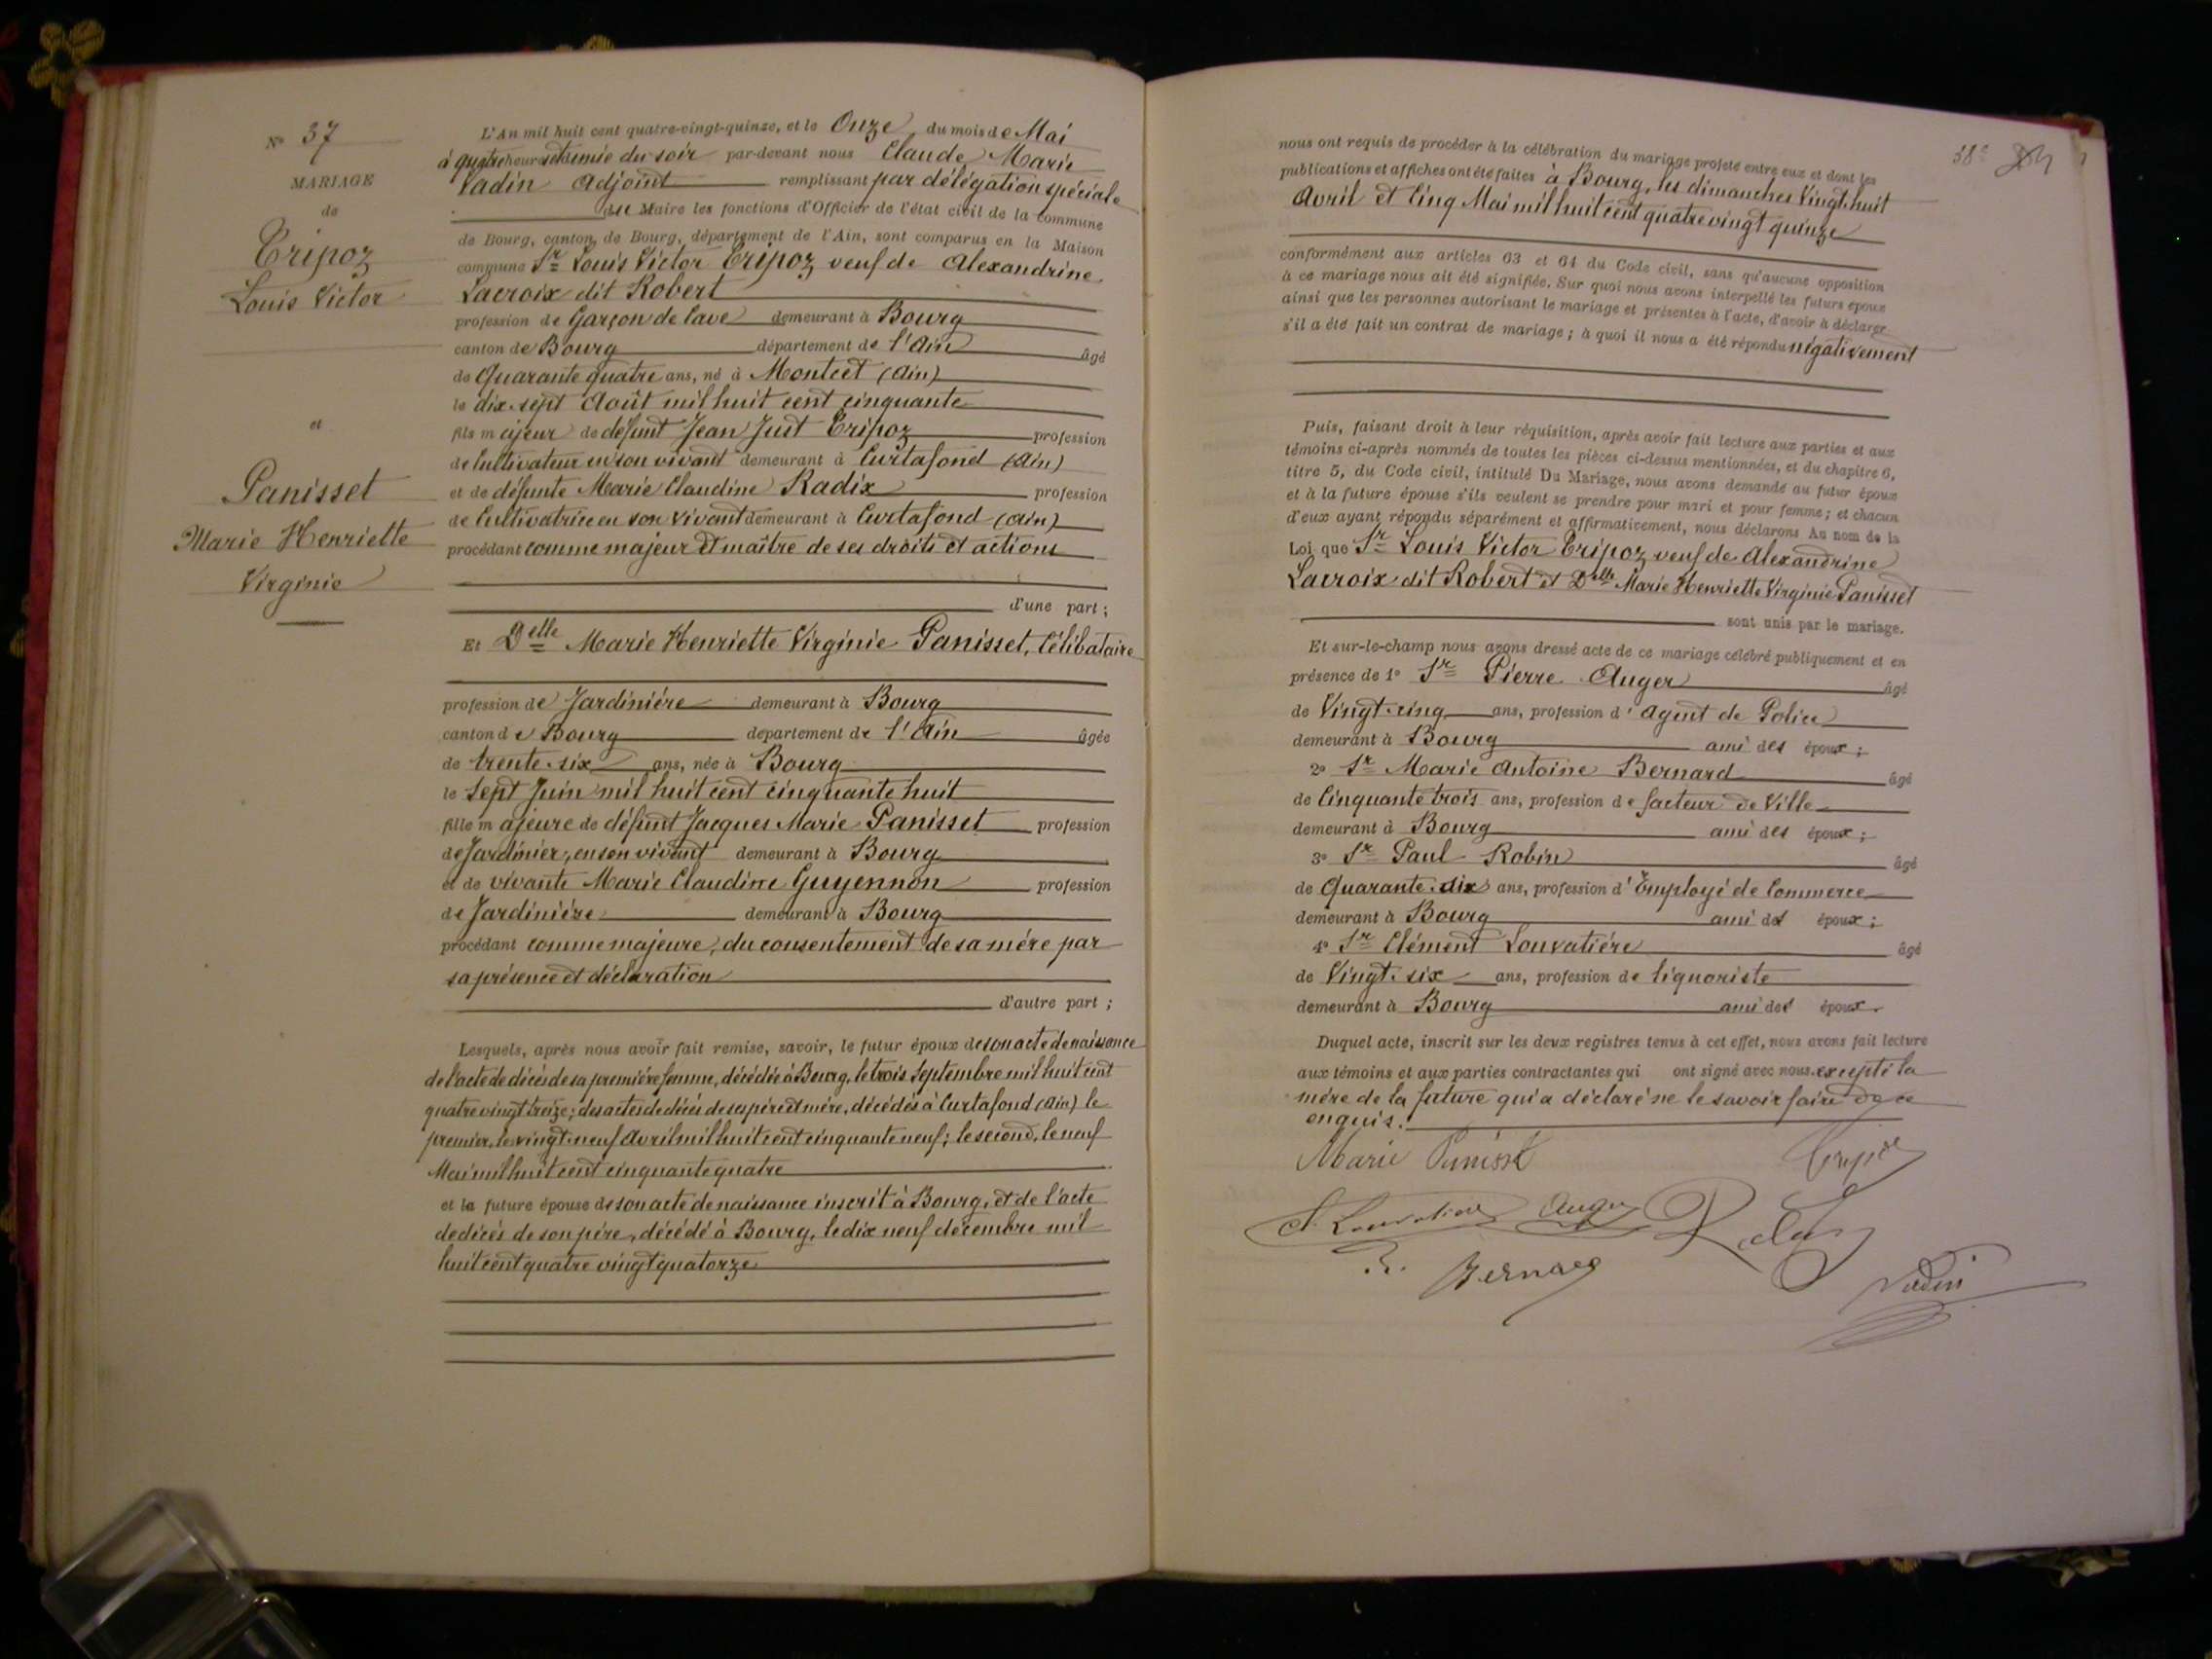 N° 37
MARIAGE
de
Tripoz
Louis Victor
et
Panisset
Marie Henriette
Virginie
L'An mil huit cent quatre-vingt-quinze, et le Onze du mois de Mai
à quatre heures et demie du soir par-devant nous Claude Marie
Vadin Adjoint remplissant par délégation spéciale
du Maire les fonctions d'Officier de l'état civil de la commune
de Bourg, canton de Bourg, département de l'Ain, sont comparus en la Maison
commune Sr Louis Victor Tripoz veuf de Alexandrine
Lacroix dit Robert
profession de Garçon de Cave demeurant à Bourg
canton de Bourg département de l'Ain âgé
de Quarante quatre ans, né à Montcet (Ain)
le dix-sept Août mil huit cent cinquante
fils majeur de défunt Jean Just Tripoz profession
de Cultivateur en son vivant demeurant à Curtafond (Ain)
et de défunte Marie Claudine Radix profession
de Cultivatrice en son vivant demeurant à Curtafond (Ain)
procédant comme majeur et maître de ses droits et actions
d'une part ;
Et Delle Marie Henriette Virginie Panisset, Célibataire
profession de Jardinière demeurant à Bourg
canton de Bourg département de l'Ain âgée
de trente-six ans, née à Bourg
le Sept Juin mil huit cent cinquante huit
fille majeure de défunt Jacques Marie Panisset profession
de Jardinier, en son vivant demeurant à Bourg
et de vivante Marie Claudine Guyennon profession
de Jardinière demeurant à Bourg
procédant comme majeure, du consentement de sa mère par
sa présence et déclaration
d'autre part ;
Lesquels, après nous avoir fait remise, savoir, le futur époux de son acte de naissance
de l'acte de décès de sa première femme, décédée à Bourg, le trois Septembre mil huit cent
quatre vingt treize ; des actes de décès de ses père et mère, décédés à Curtafond (Ain) le
premier, le vingt-neuf Avril mil huit cent cinquante neuf ; le second, le neuf
Mai mil huit cent cinquante quatre
et la future épouse de son acte de naissance inscrit à Bourg, et de l'acte
de décès de son père, décédé à Bourg, le dix neuf décembre mil
huit cent quatre vingt quatorze
58e
nous ont requis de procéder à la célébration du mariage projeté entre eux et dont les
publications et affiches ont été faites à Bourg, les dimanches Vingt-huit
Avril et Cinq Mai mil huit cent quatre vingt quinze
conformément aux articles 63 et 64 du Code civil, sans qu'aucune opposition
à ce mariage nous ait été signifiée. Sur quoi nous avons interpellé les futurs époux
ainsi que les personnes autorisant le mariage et présentes à l'acte, d'avoir à déclarer
s'il a été fait un contrat de mariage ; à quoi il nous a été répondu négativement
Puis, faisant droit à leur réquisition, après avoir fait lecture aux parties et aux
témoins ci-après nommés de toutes les pièces ci-dessus mentionnées, et du chapitre 6,
titre 5, du Code civil, intitulé Du Mariage, nous avons demandé au futur époux
et à la future épouse s'ils veulent se prendre pour mari et pour femme ; et chacun
d'eux ayant répondu séparément et affirmativement, nous déclarons Au nom de la
Loi que Sr Louis Victor Tripoz veuf de Alexandrine
Lacroix dit Robert et Delle Marie Henriette Virginie Panisset
sont unis par le mariage.
Et sur-le-champ nous avons dressé acte de ce mariage célébré publiquement et en
présence de 1° Sr Pierre Auger âgé
de Vingt-cinq ans, profession d'Agent de Police
demeurant à Bourg ami des époux ;
2° Sr Marie Antoine Bernard âgé
de Cinquante trois ans, profession de facteur de Ville
demeurant à Bourg ami des époux ;
3° Sr Paul Robin âgé
de Quarante-six ans, profession d'Employé de Commerce
demeurant à Bourg ami des époux ;
4° Sr Clément Louvatière âgé
de Vingt-six ans, profession de liquoriste
demeurant à Bourg ami des époux.
Duquel acte, inscrit sur les deux registres tenus à cet effet, nous avons fait lecture
aux témoins et aux parties contractantes qui ont signé avec nous. excepté la
mère de la future qui a déclaré ne le savoir faire de ce
enquis.
Marie Panisset Tripoz
C. Louvatière Auger
Bernard Vadin